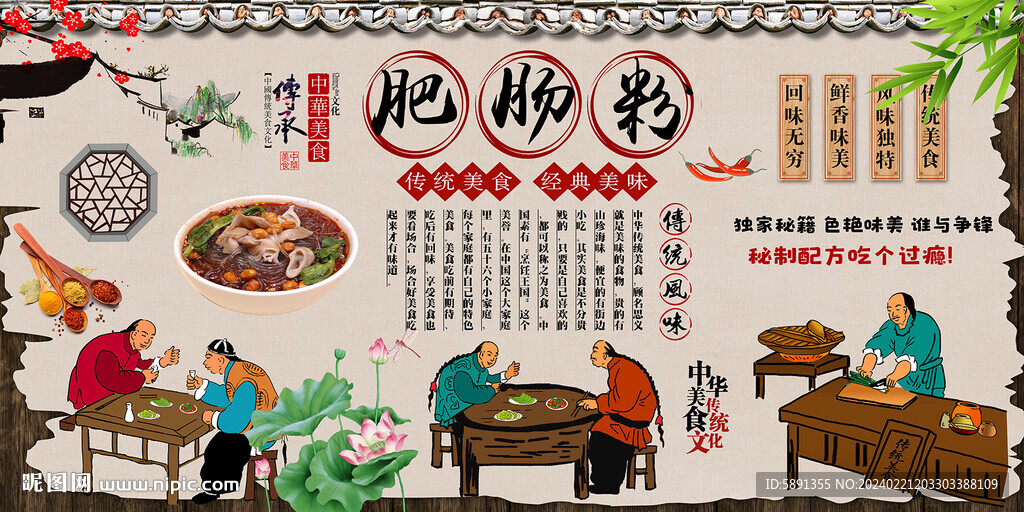 肥肠粉
传统美食 经典美味
中華美食
文化
傳承
【中國傳統美食文化】
中華美食
传统美食
风味独特
鲜香味美
回味无穷
独家秘籍 色艳味美 谁与争锋
秘制配方吃个过瘾!
傳統風味
中华传统美食，顾名思义
就是美味的食物，贵的有
山珍海味，便宜的有街边
小吃，其实美食是不分贵
贱的，只要是自己喜欢的
，都可以称之为美食。中
国素有"烹饪王国"这个
美誉，在中国这个大家庭
里，有五十六个小家庭，
每个家庭都有自己的特色
美食，美食吃前有期待、
吃后有回味，享受美食也
要看场合，场合好美食吃
起来才有味道。
中华美食传统文化
传统美
昵图网 www.nipic.com
ID:5891355 NO:20240221203303388109